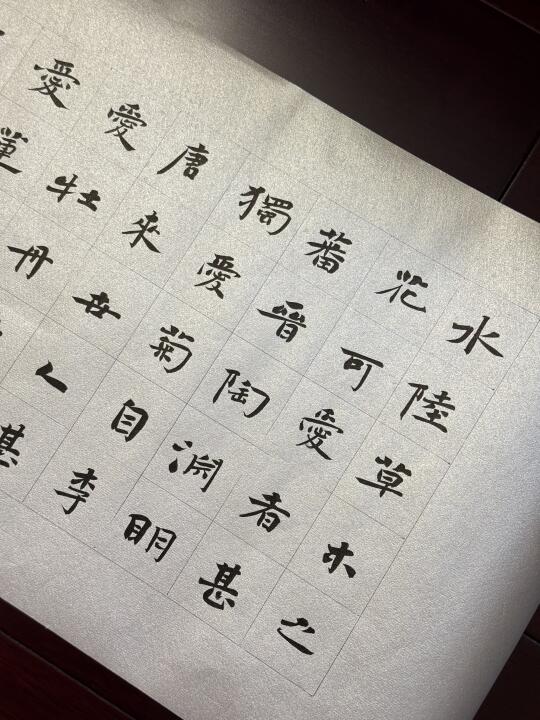 水陸草木之
花可愛者甚
蕃晉陶淵明
獨愛菊自李
唐來世人甚
愛牡丹
愛蓮